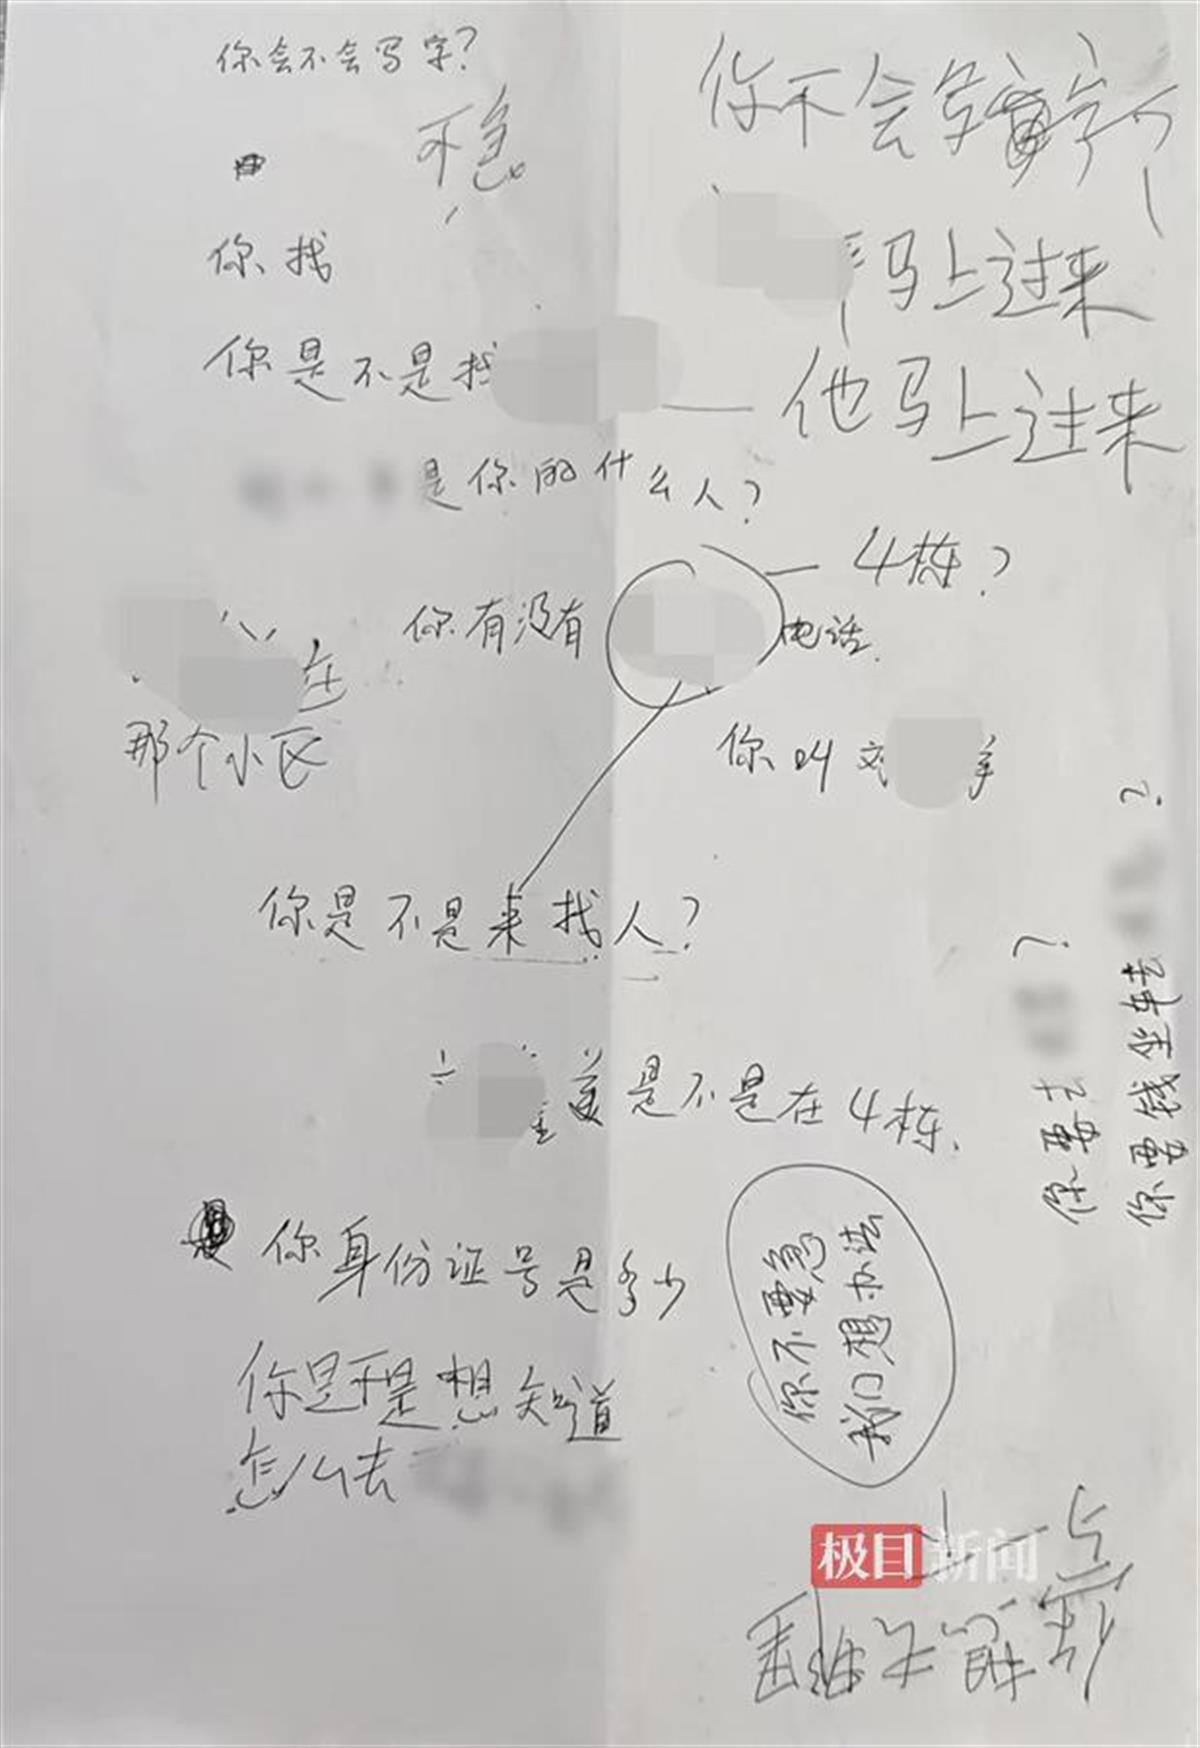 你会不会写字?
不急
你不会写字
你找
马上过来
你是不是找
他马上过来
是你的什么人?
4栋?
你有没有
电话.
在
那个小区
你叫刘
你是不是来找人?
是不是在4栋.
你要去
?
你要钱坐车去
?
你身份证号是多少
你不要急
我们想办法
你是不是想知道
怎么去
极目新闻